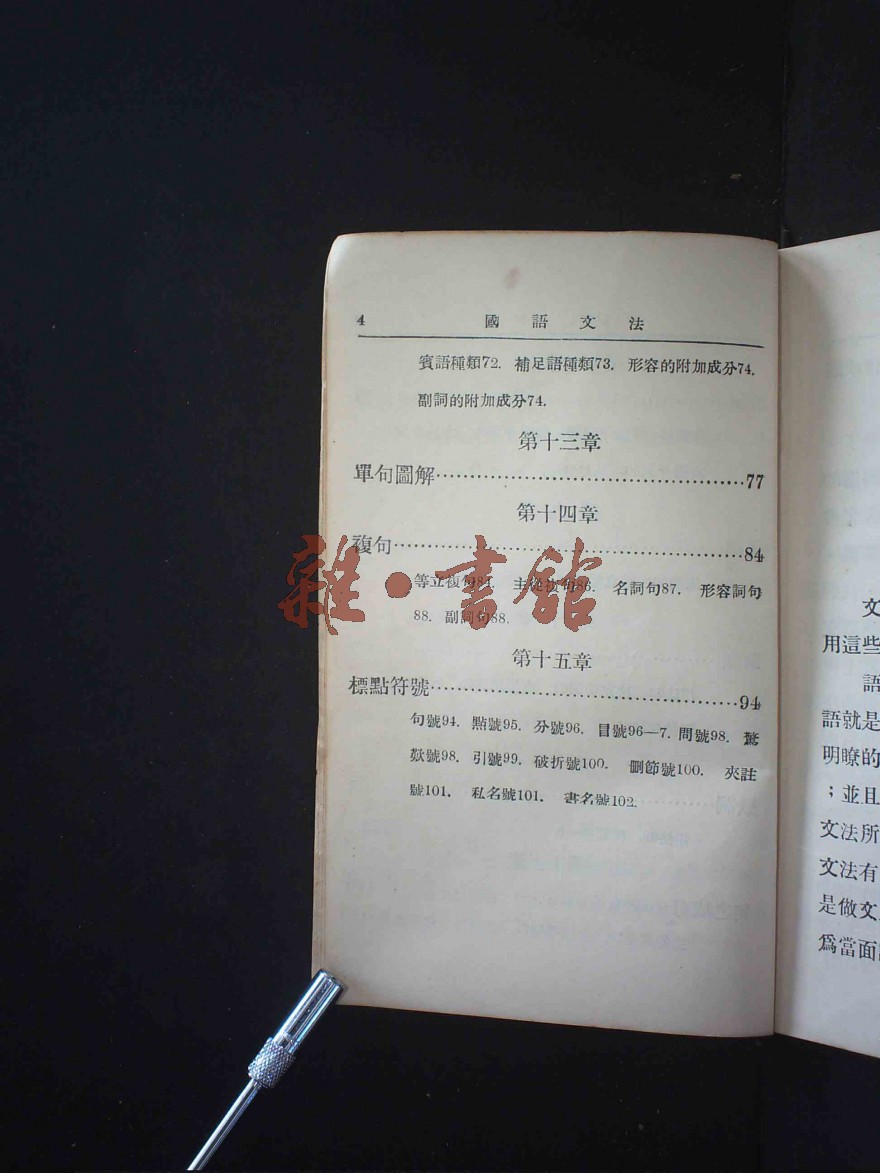 4 國語文法
賓語種類72. 補足語種類73. 形容的附加成分74.
副詞的附加成分74.
第十三章
單句圖解……………………………………77
第十四章
複句…………………………………………84
等立複句84. 主從複句86. 名詞句87. 形容詞句
88. 副詞句88.
第十五章
標點符號……………………………………94
句號94. 點號95. 分號96. 冒號96—7. 問號98. 驚
歎號98. 引號99. 破折號100. 刪節號100. 夾註
號101. 私名號101. 書名號102.
雜·書館
文
用這些
語
語就是
明瞭的
；並且
文法所
文法有
是做文
爲當面